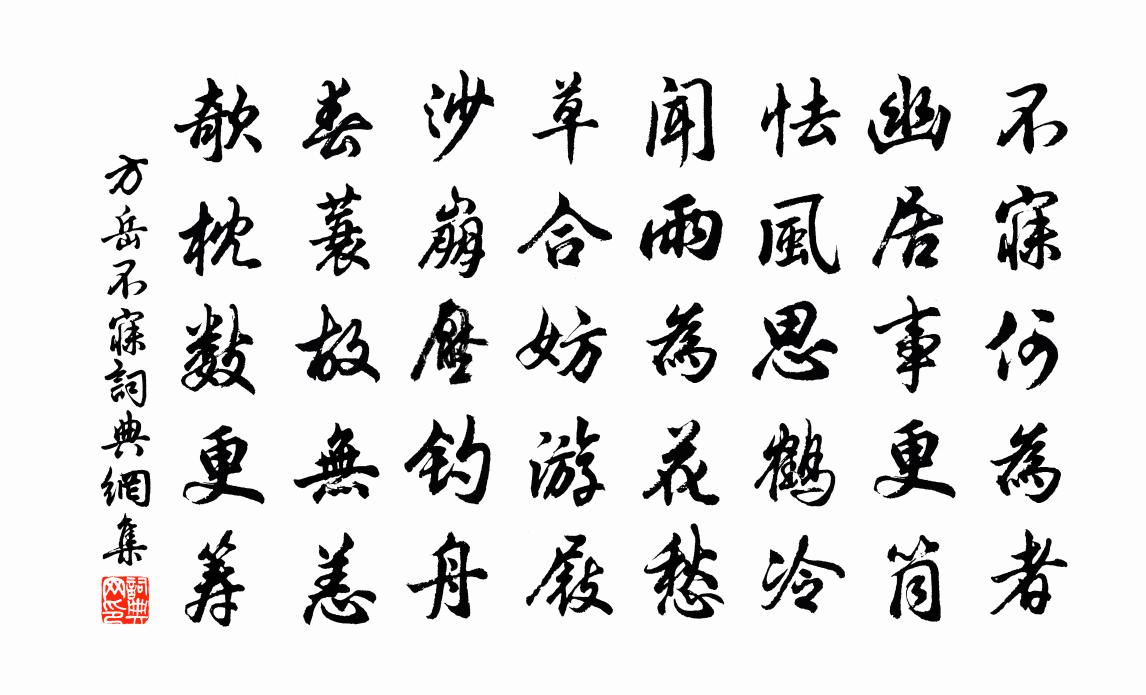 不寐何為者
幽居事更
怯風思鶴冷
聞雨為花愁
草合妨游屐
沙崩壓釣舟
春蓑故無恙
欹枕數更筹
方岳不寐詞典網集
詞典